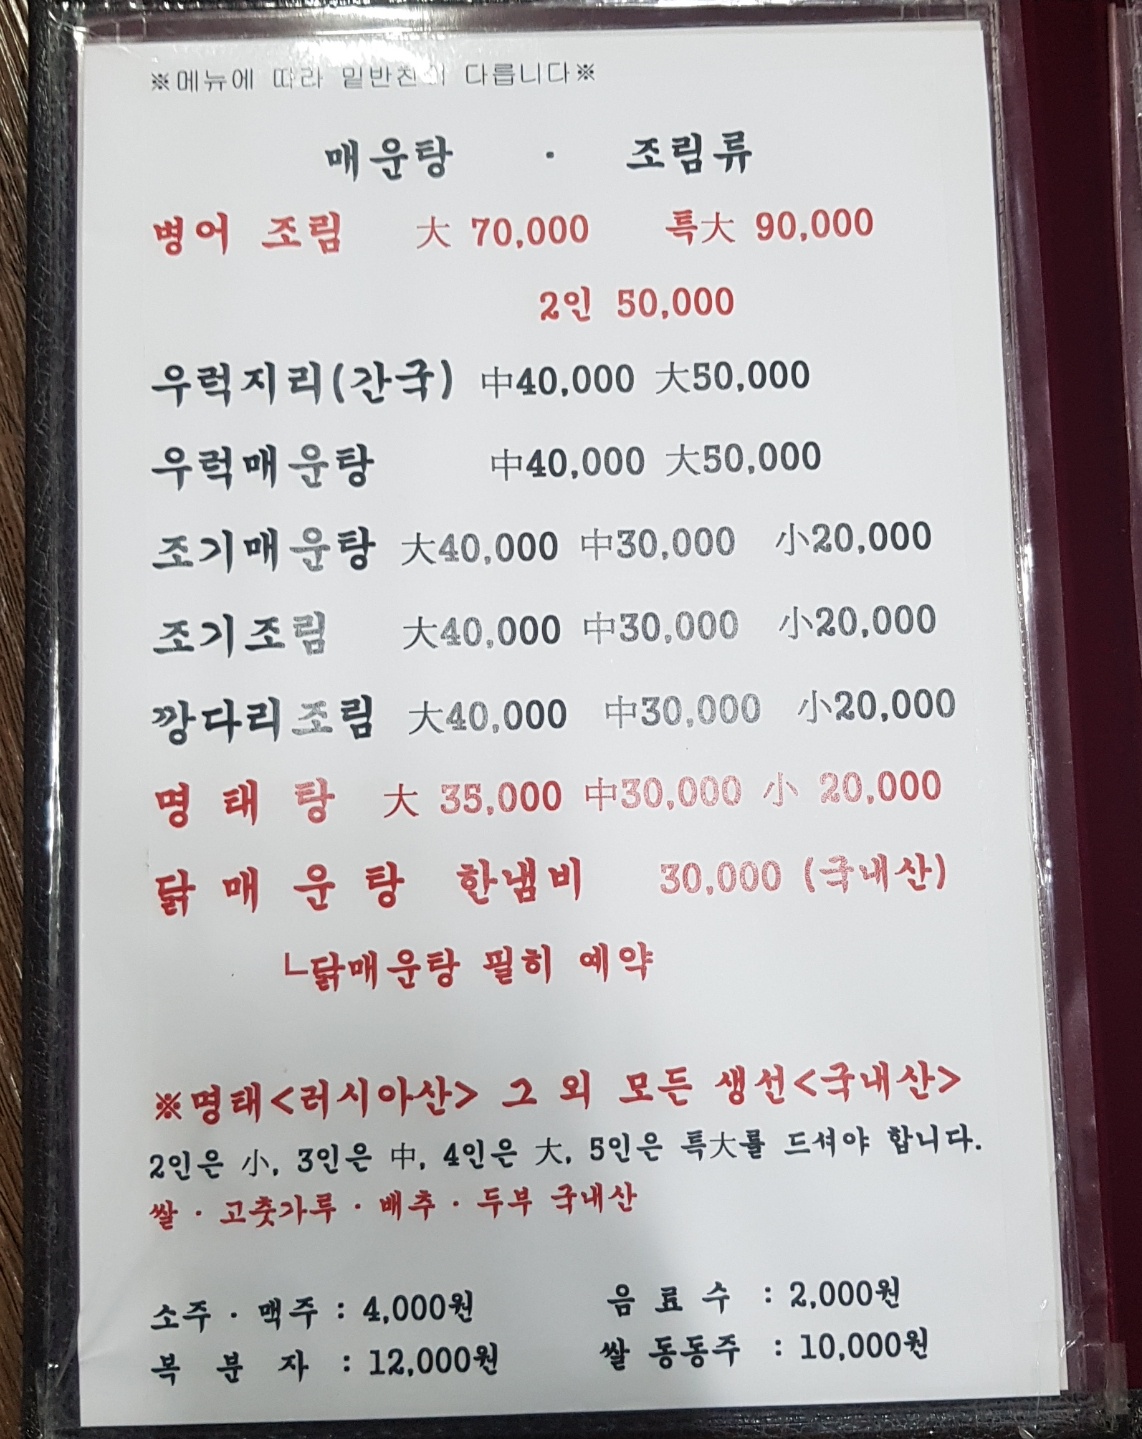 ※메뉴에 따라 밑반찬이 다릅니다※
매운탕 · 조림류
병어 조림 大 70,000 특大 90,000
2인 50,000
우럭지리(간국) 中40,000 大50,000
우럭매운탕 中40,000 大50,000
조기매운탕 大40,000 中30,000 小20,000
조기조림 大40,000 中30,000 小20,000
깡다리조림 大40,000 中30,000 小20,000
명 태 탕 大 35,000 中30,000 小 20,000
닭 매 운 탕 한냄비 30,000 (국내산)
└닭매운탕 필히 예약
※명태<러시아산> 그 외 모든 생선<국내산>
2인은 小, 3인은 中, 4인은 大, 5인은 특大를 드셔야 합니다.
쌀 · 고춧가루 · 배추 · 두부 국내산
소주 · 맥주 : 4,000원 음 료 수 : 2,000원
복 분 자 : 12,000원 쌀 동동주 : 10,000원